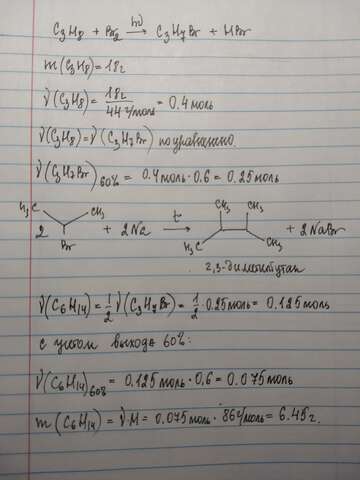 C₃H₈ + Br₂ —hν→ C₃H₇Br + HBr
m(C₃H₈) = 18г
ν(C₃H₈) = 18г / 44 г/моль = 0.4 моль
ν(C₃H₈) = ν(C₃H₇Br) по уравнению.
ν(C₃H₇Br)60% = 0.4 моль · 0.6 = 0.25 моль
2 H₃C CH₃ Br + 2Na —t→ CH₃ CH₃ H₃C CH₃ + 2NaBr
2,3-диметилбутан
ν(C₆H₁₄) = 1/2 ν(C₃H₇Br) = 1/2 · 0.25 моль = 0.125 моль
с учетом выхода 60%:
ν(C₆H₁₄)60% = 0.125 моль · 0.6 = 0.075 моль
m(C₆H₁₄) = ν·M = 0.075 моль · 86 г/моль = 6.45 г.